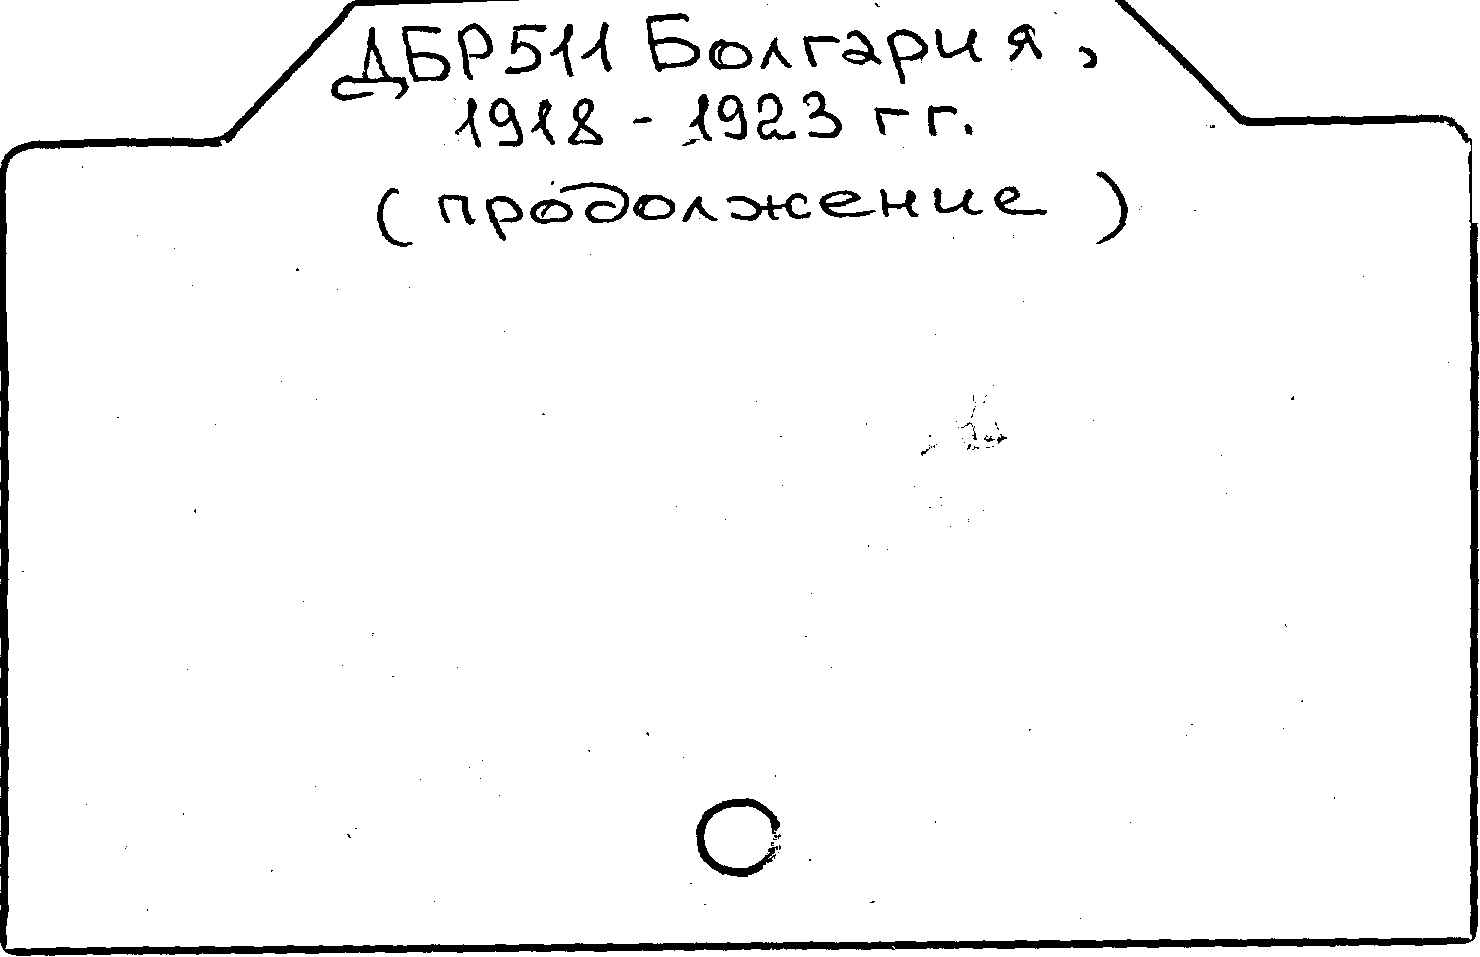 ДБР511 Болгария,
1918 - 1923 гг.
(продолжение)